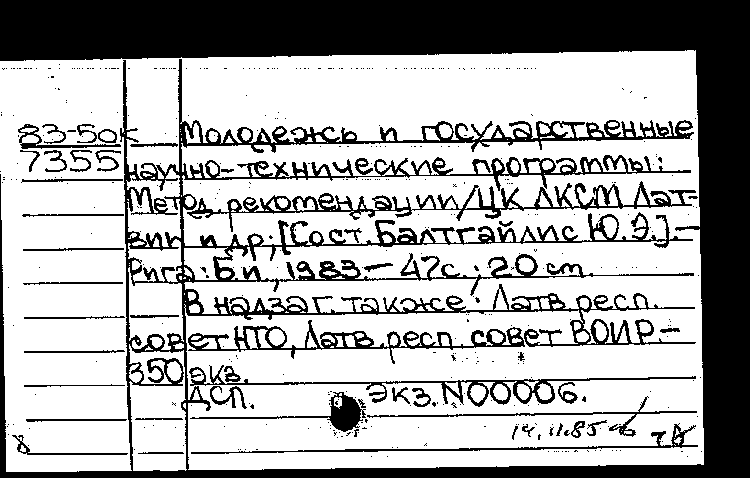 83-50к Молодежь и государственные
7355 научно-технические программы:
Метод. рекомендации/ЦК ЛКСМ Лат-
вии и др; [Сост. Балтгайлис Ю.Э.].—
Рига: Б.и., 1983— 47с.; 20 cm.
В надзаг. также: Латв. респ.
совет НТО, Латв. респ. совет ВОИР.—
350 экз.
ДСП. Экз. N00006.
14.11.85